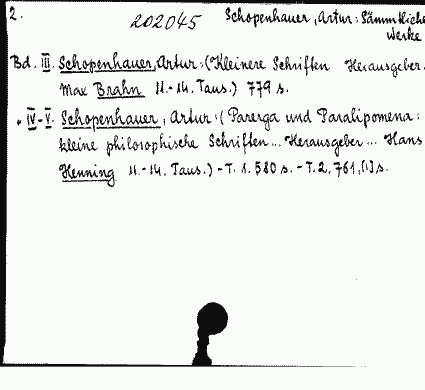 2. 202045 Schopenhauer, Artur: Sämmtliche
Werke
Bd. III. Schopenhauer, Artur: (Kleinere Schriften Herausgeber.
Max Brahn 11.-14. Taus.) 779 s.
" IV-V. Schopenhauer, Artur: (Parerga und Paralipomena:
kleine philosophische Schriften... Herausgeber... Hans
Henning 11.-14. Taus.) - T. 1. 580 s. - T. 2. 761, [1] s.